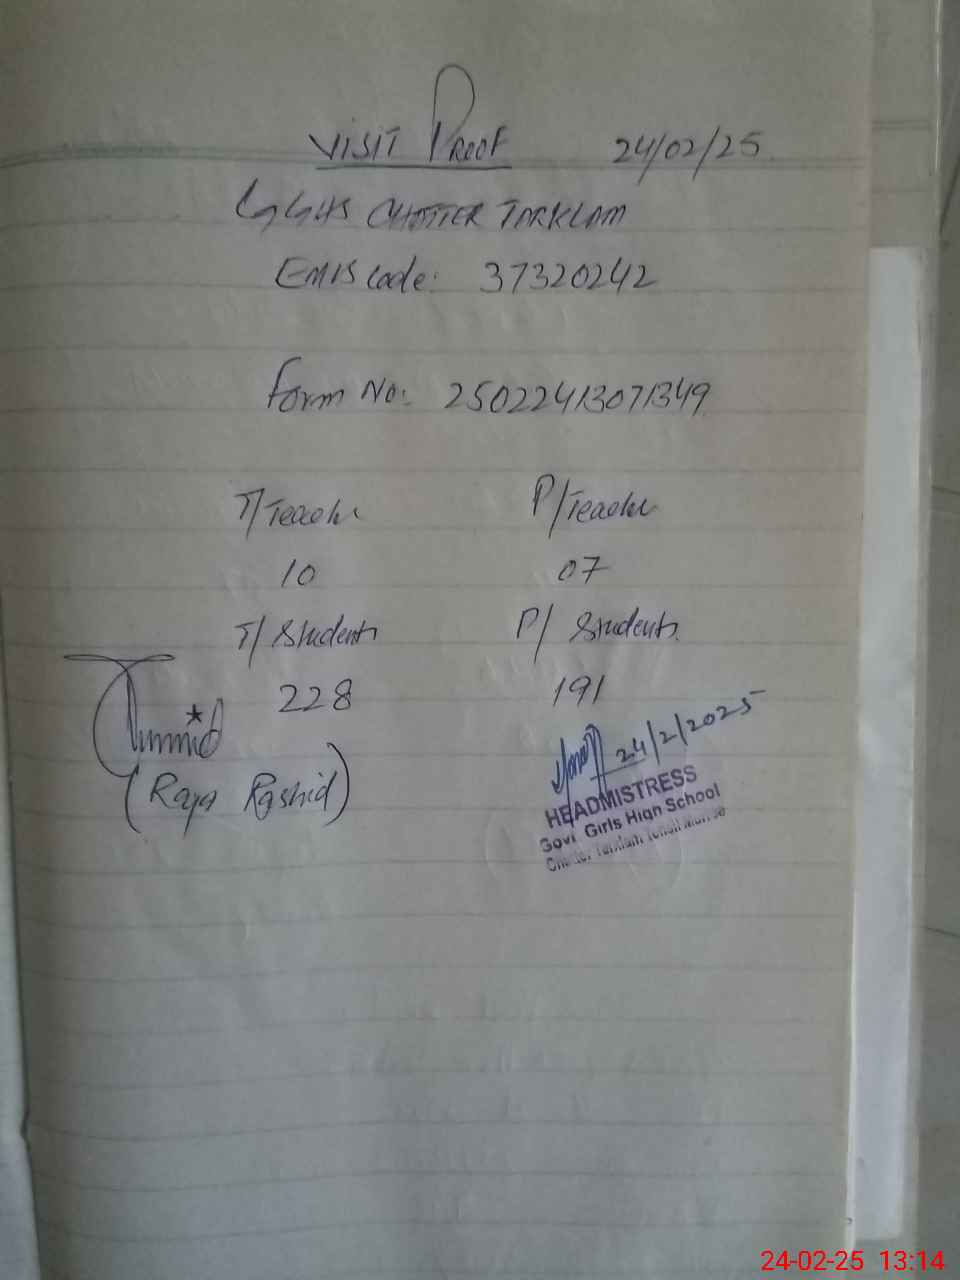 VISIT PROOF 24/02/25
GGHS CHATTER TARKLAM
EMIS code: 37320242
Form No: 25022413071349
T/Teacher P/Teacher
10 07
T/Students P/Students
228 191
24/2/2025
(Raja Rashid)
HEADMISTRESS
Govt Girls High School
Chatter Tarklam Tehsil Murree
24-02-25 13:14